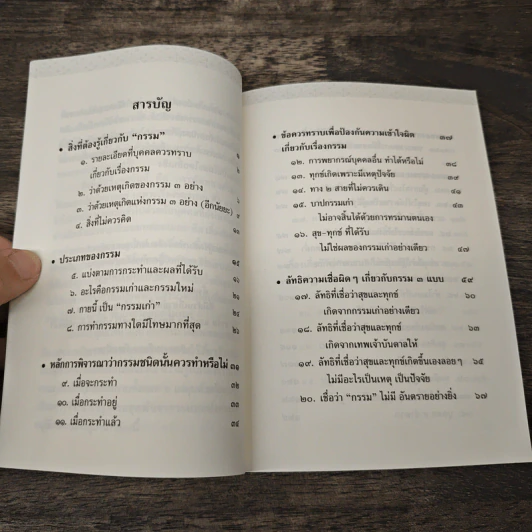 สารบัญ
• สิ่งที่ต้องรู้เกี่ยวกับ “กรรม” ๑
๑. รายละเอียดที่บุคคลควรทราบ
เกี่ยวกับเรื่องกรรม
๒. ว่าด้วยเหตุเกิดของกรรม ๓ อย่าง
๓. ว่าด้วยเหตุเกิดแห่งกรรม ๓ อย่าง (อีกนัยยะ) ๙
๔. สิ่งที่ไม่ควรคิด ๑๐
• ประเภทของกรรม ๑๕
๕. แบ่งตามการกระทำและผลที่ได้รับ
๖. อะไรคือกรรมเก่าและกรรมใหม่ ๒๑
๗. กายนี้ เป็น “กรรมเก่า” ๒๔
๘. การทำกรรมทางใดมีโทษมากที่สุด ๒๖
• หลักการพิจารณาว่ากรรมชนิดนั้นควรทำหรือไม่ ๓๑
๙. เมื่อจะกระทำ ๓๒
๑๐. เมื่อกระทำอยู่ ๓๓
๑๑. เมื่อกระทำแล้ว ๓๔
• ข้อควรทราบเพื่อป้องกันความเข้าใจผิด ๓๗
เกี่ยวกับเรื่องกรรม
๑๒. การพยากรณ์บุคคลอื่น ทำได้หรือไม่ ๓๘
๑๓. ทุกข์เกิดเพราะมีเหตุปัจจัย ๓๙
๑๔. ทาง ๒ สายที่ไม่ควรเดิน ๔๑
๑๕. บาปกรรมเก่า ๔๓
ไม่อาจสิ้นได้ด้วยการทรมานตนเอง
๑๖. สุข-ทุกข์ ที่ได้รับ
ไม่ใช่ผลของกรรมเก่าอย่างเดียว ๔๗
• ลัทธิความเชื่อผิดๆ เกี่ยวกับกรรม ๓ แบบ ๕๙
๑๗. ลัทธิที่เชื่อว่าสุขและทุกข์ ๖๐
เกิดจากกรรมเก่าอย่างเดียว
๑๘. ลัทธิที่เชื่อว่าสุขและทุกข์ ๖๓
เกิดจากเทพเจ้าบันดาลให้
๑๙. ลัทธิที่เชื่อว่าสุขและทุกข์เกิดขึ้นเองลอยๆ ๖๕
ไม่มีอะไรเป็นเหตุ เป็นปัจจัย
๒๐. เชื่อว่า “กรรม” ไม่มี อันตรายอย่างยิ่ง ๖๗